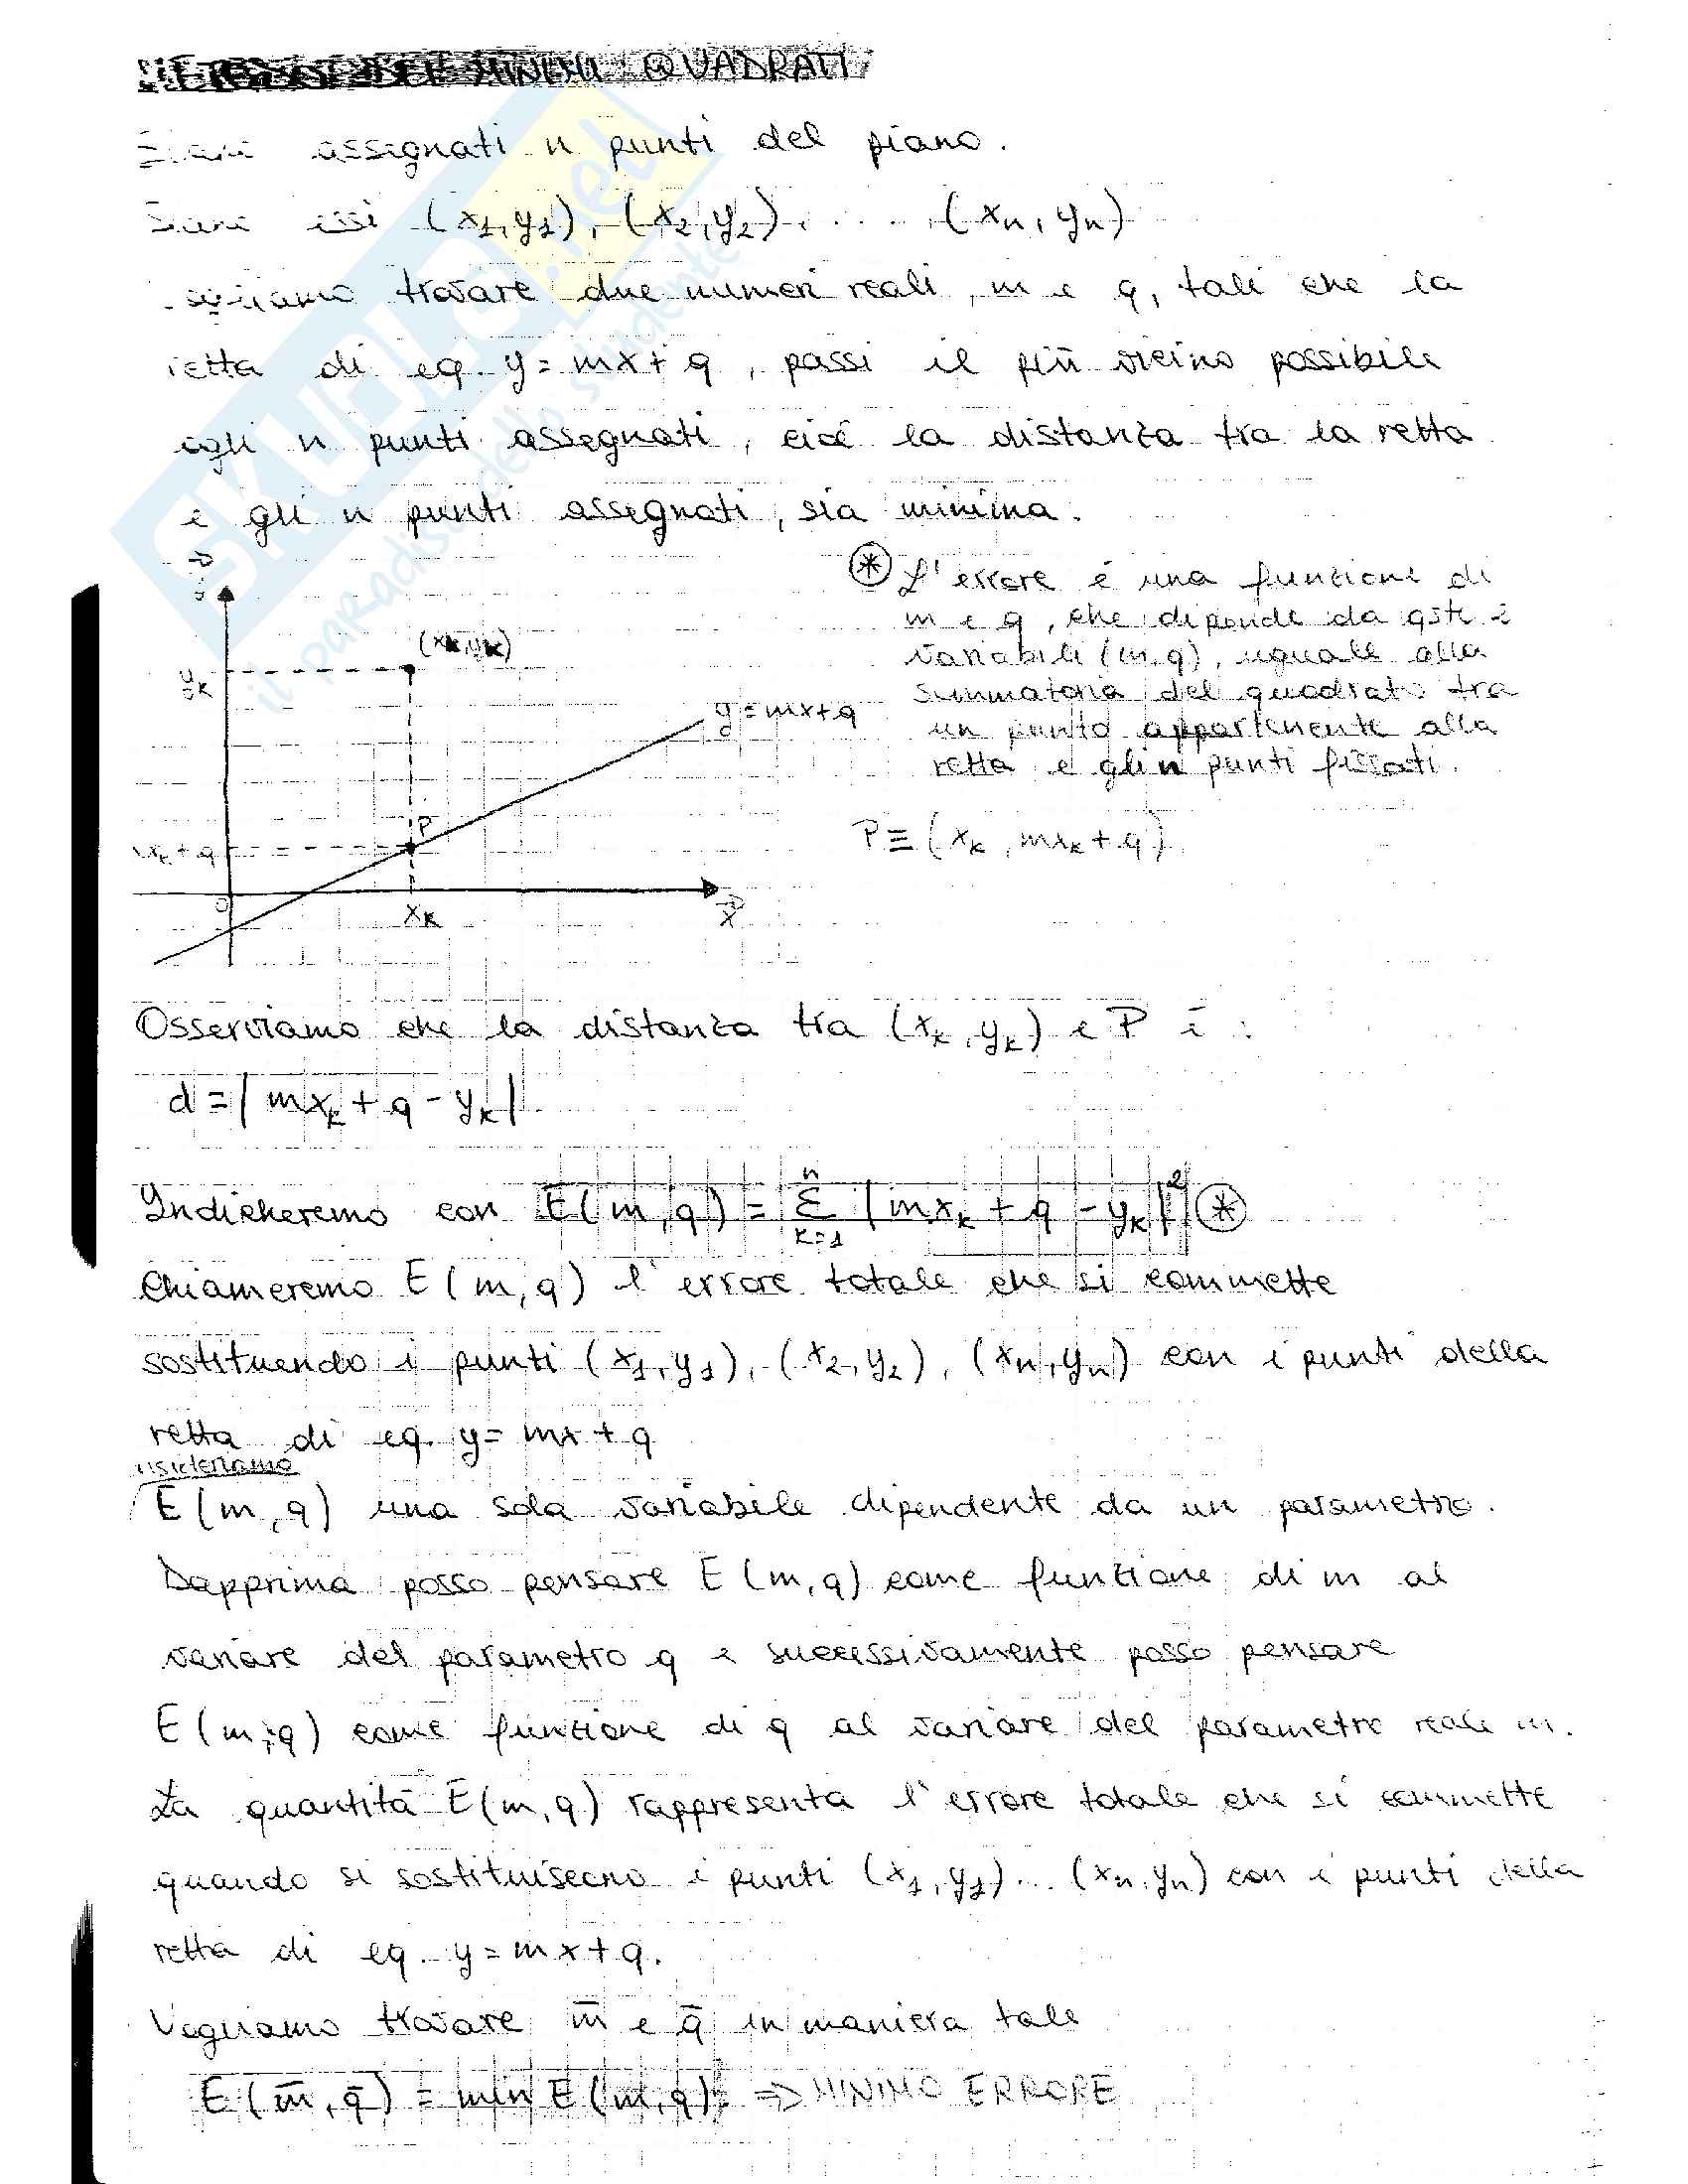 METODO DEI MINIMI QUADRATI
Siano assegnati n punti del piano.
Siano essi (x₁,y₁), (x₂,y₂), . . . . , (xₙ, yₙ)
vogliamo trovare due numeri reali, m e q, tali che la
retta di eq. y = mx + q, passi il più vicino possibile
agli n punti assegnati, cioè la distanza tra la retta
e gli n punti assegnati, sia minima.
⊛ L'errore è una funzione di
m e q, che dipende da qste 2
variabili (m,q), uguale alla
summatoria del quadrato tra
un punto appartenente alla
retta e gli n punti fissati.
P ≡ (xₖ, mxₖ + q)
y
(xₖ,yₖ)
yₖ
y = mx + q
P
mxₖ + q
O
xₖ
x
Osserviamo che la distanza tra (xₖ, yₖ) e P è :
d = | mxₖ + q - yₖ |
Indicheremo con E(m,q) = Σ |mxₖ + q - yₖ|² ⊛
n
k=1
Chiameremo E(m,q) l'errore totale che si commette
sostituendo i punti (x₁,y₁), (x₂,y₂), (xₙ,yₙ) con i punti della
retta di eq. y = mx + q
E(m,q) una sola variabile dipendente da un parametro.
Dapprima posso pensare E(m,q) come funzione di m al
variare del parametro q e successivamente posso pensare
E(m,q) come funzione di q al variare del parametro reale m.
La quantità E(m,q) rappresenta l'errore totale che si commette
quando si sostituiscono i punti (x₁,y₁)... (xₙ,yₙ) con i punti della
retta di eq. y = mx + q.
Vogliamo trovare m̄ e q̄ in maniera tale
E(m̄,q̄) = min E(m,q) => MINIMO ERRORE
SKUOLA.net
il paradiso dello studente